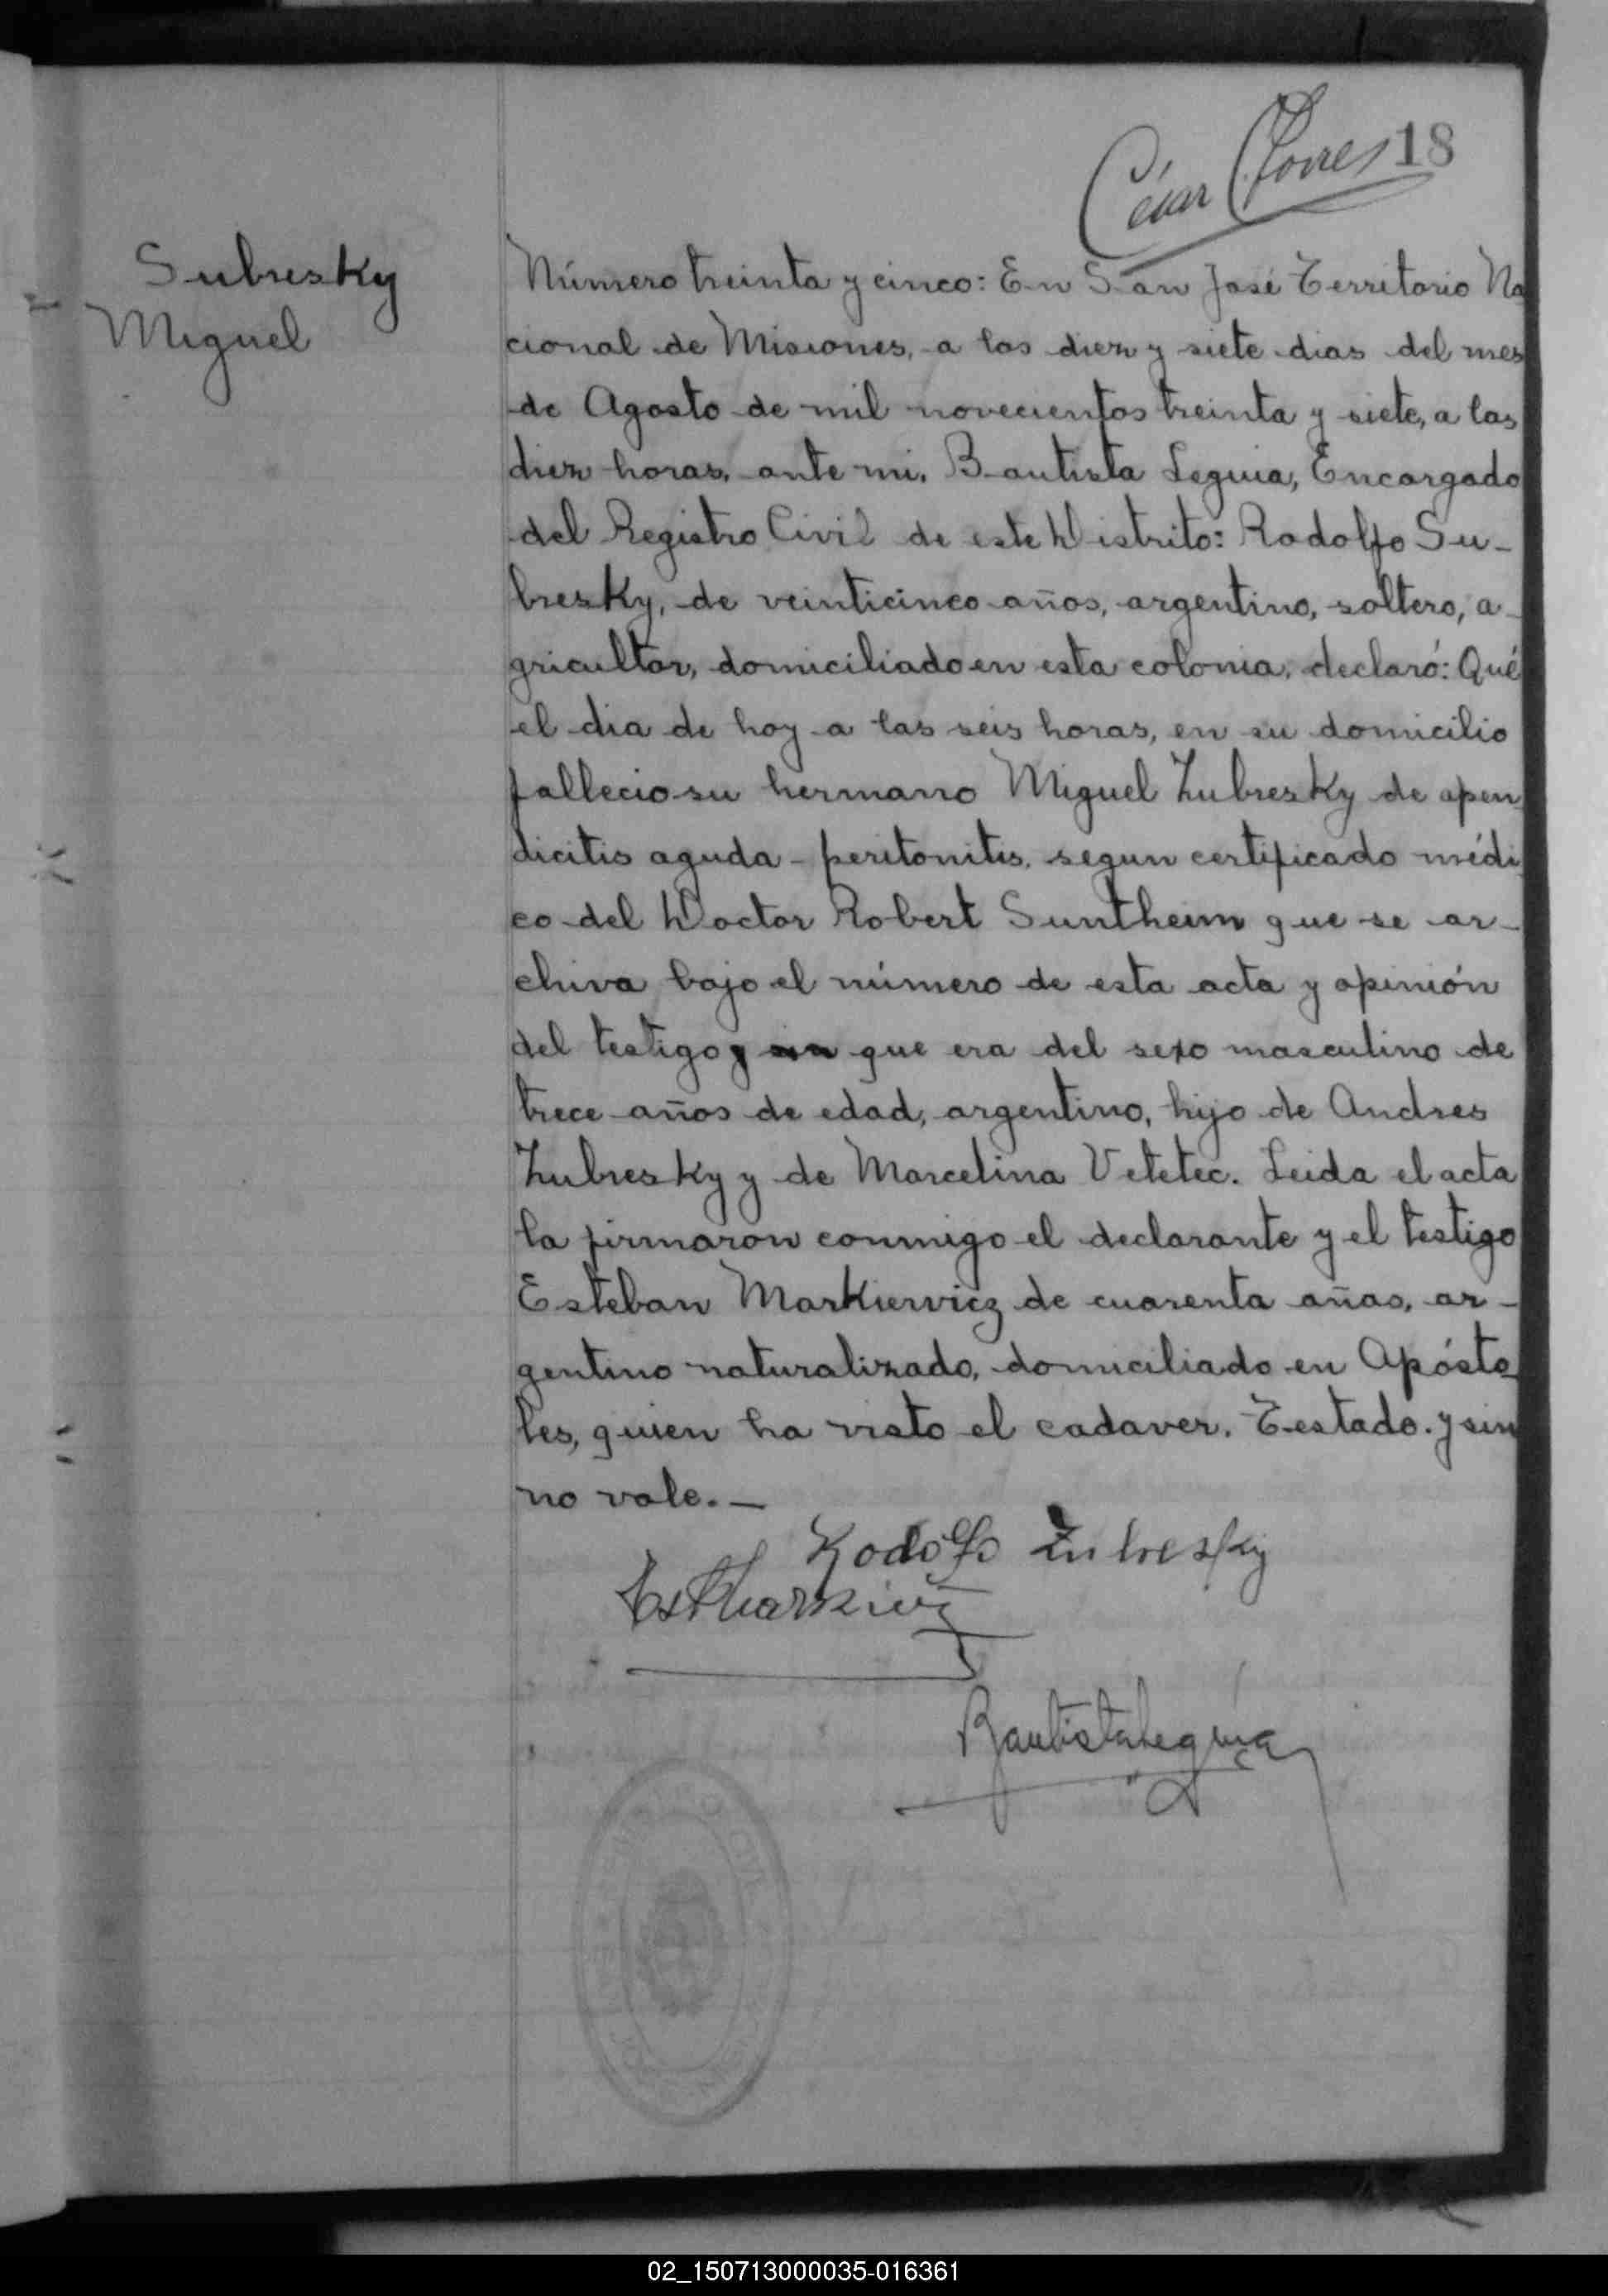 César Torres 18
Subresky
Miguel
Número treinta y cinco: En San José Territorio Na
cional de Misiones, a los diez y siete dias del mes
de Agosto de mil novecientos treinta y siete, a las
diez horas, ante mi, Bautista Leguia, Encargado
del Registro Civil de este Distrito: Rodolfo Su-
bresky, de veinticinco años, argentino, soltero, a-
gricultor, domiciliado en esta colonia, declaró: Qué
el dia de hoy a las seis horas, en su domicilio
fallecio su hermano Miguel Zubresky de apen
dicitis aguda - peritonitis, segun certificado médi
co del Doctor Robert Suntheim que se ar-
chiva bajo el número de esta acta y opinión
del testigo y sin que era del sexo masculino de
trece años de edad, argentino, hijo de Andres
Zubresky y de Marcelina Vetetec. Leida el acta
la firmaron conmigo el declarante y el testigo
Esteban Markiewicz de cuarenta años, ar-
gentino naturalizado, domiciliado en Apósto
les, quien ha visto el cadaver. Testado. y sin
no vale.-
Rodolfo Zubresky
Bautista Leguia
02_150713000035-016361